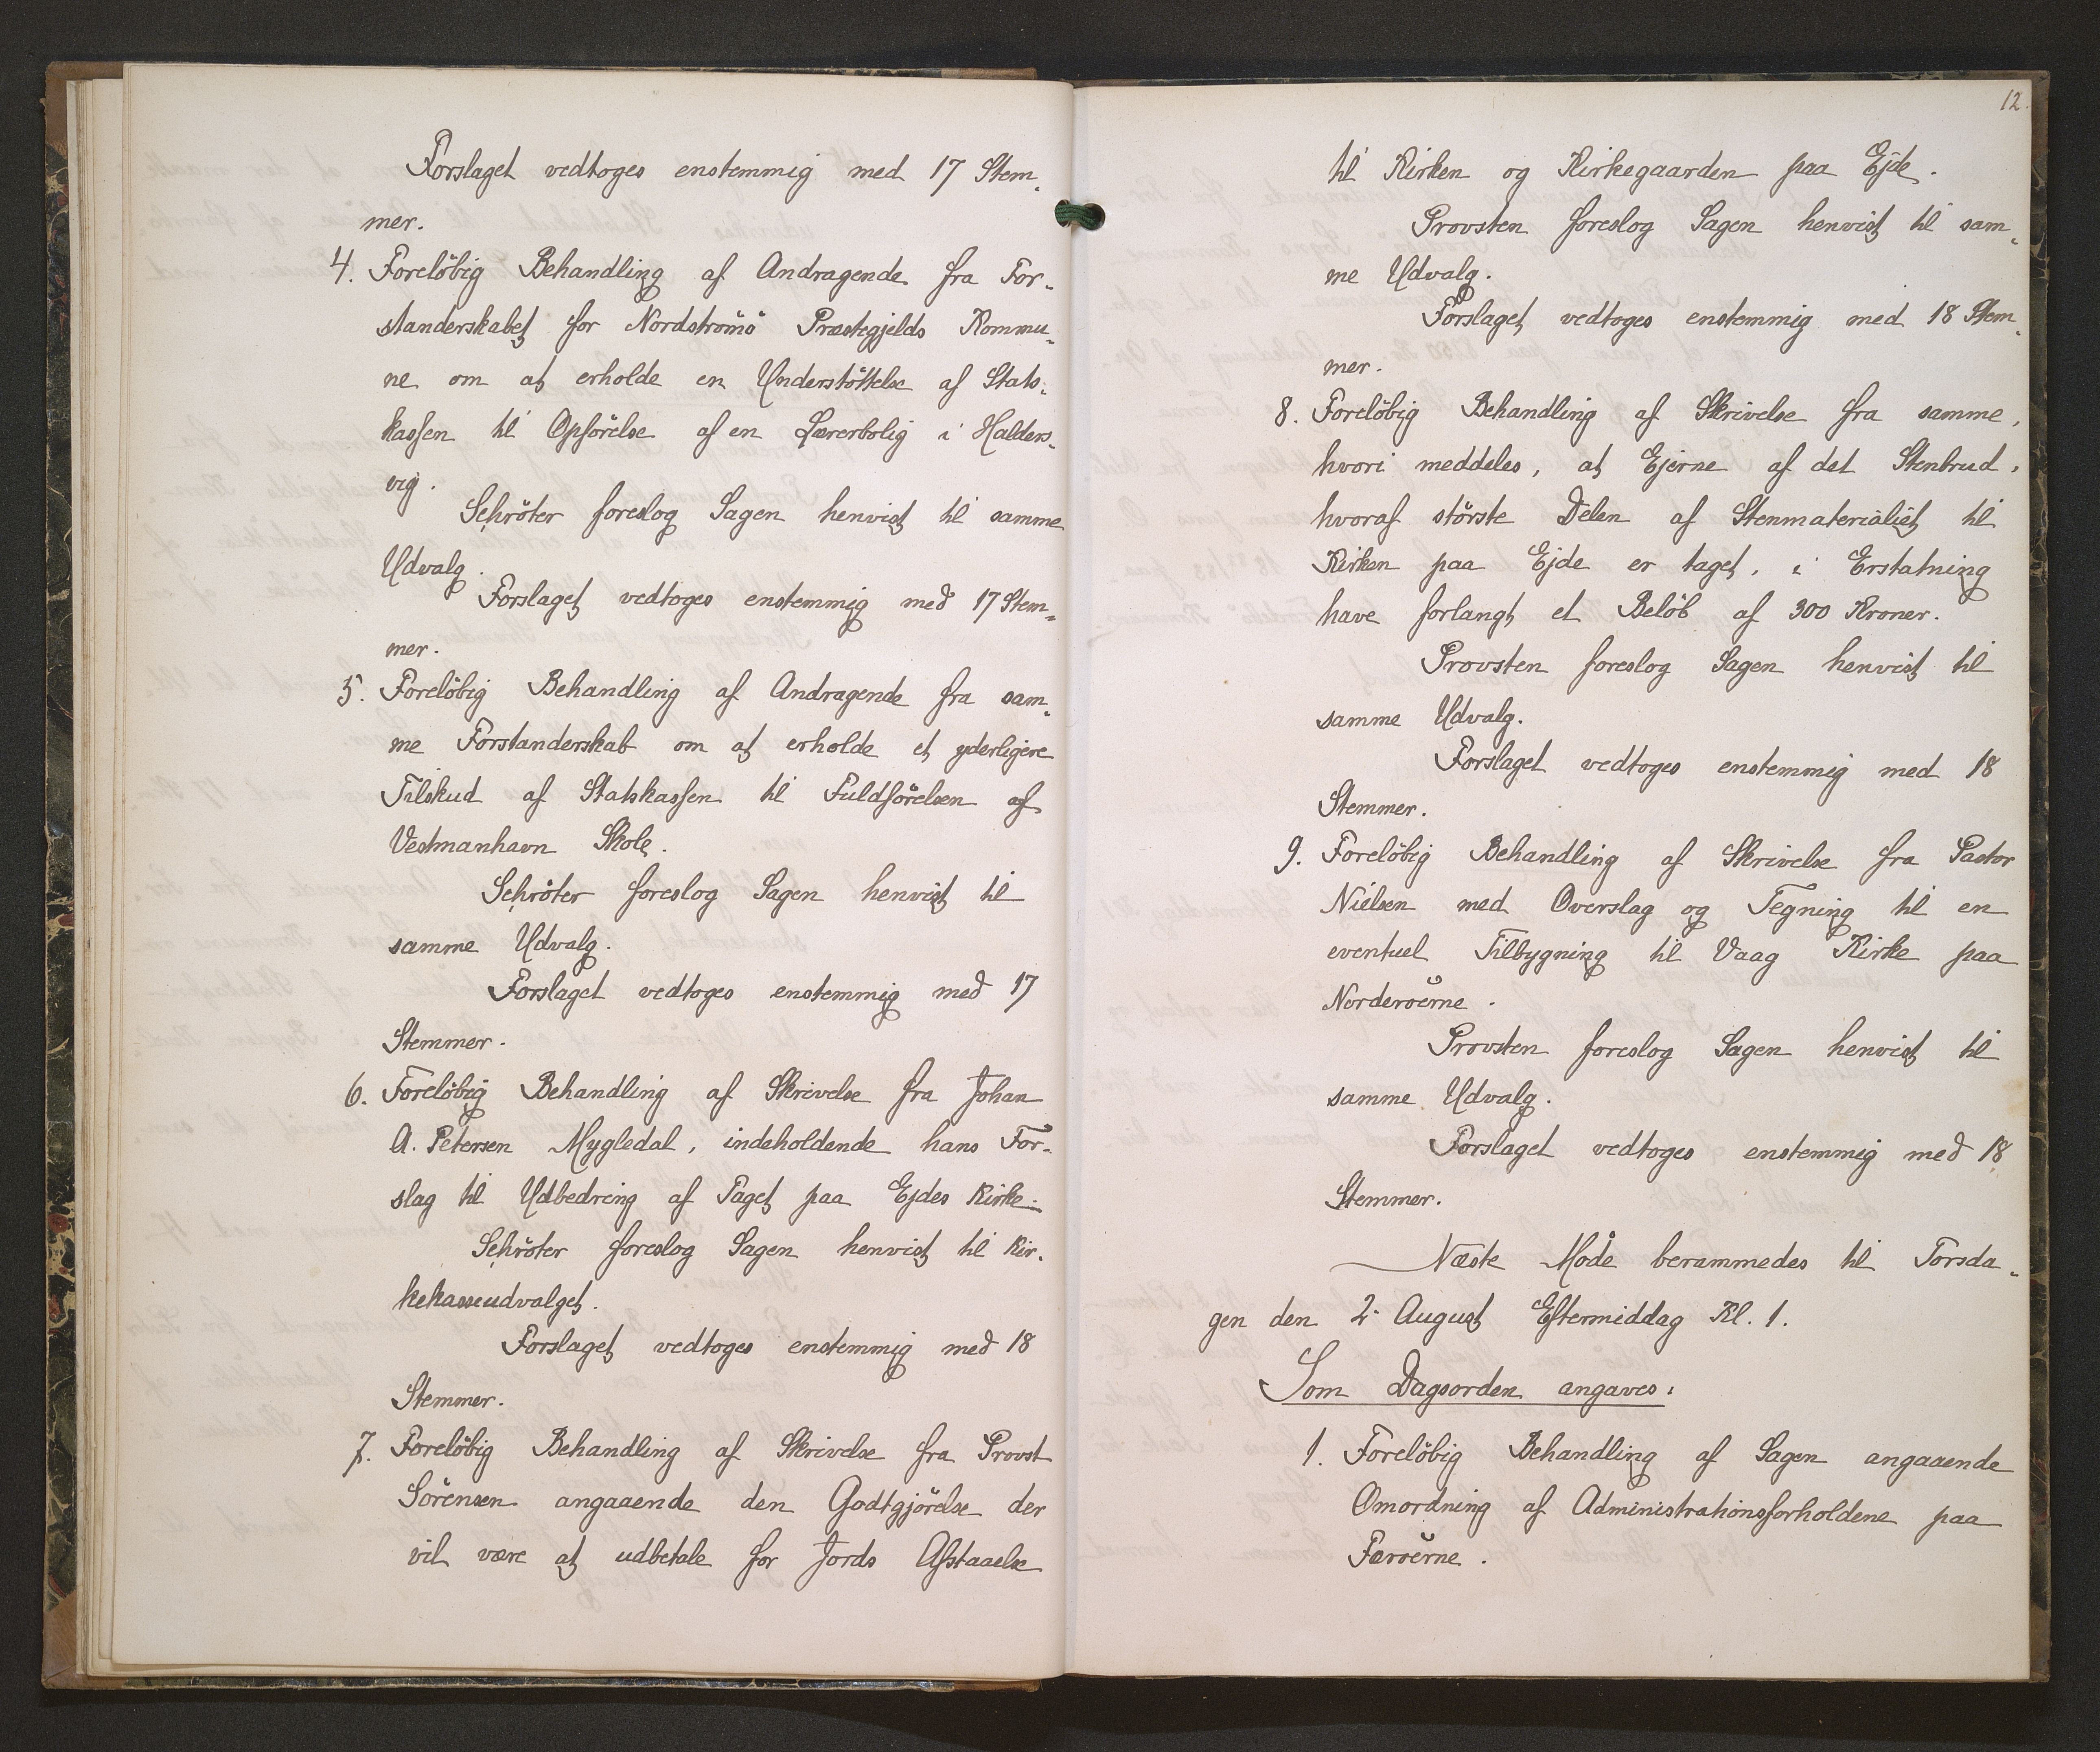 Forslaget vedtoges enstemmig med 17 Stem-
mer.
4. Foreløbig Behandling af Andragende fra For-
standerskabet for Nordstrømø Præstegjelds Kommu-
ne om at erholde en Understøttelse af Stats-
kassen til Opførelse af en Lærerbolig i Halders-
vig.
Schrøter foreslog Sagen henvist til samme
Udvalg.
Forslaget vedtoges enstemmig med 17 Stem-
mer.
5. Foreløbig Behandling af Andragende fra sam-
me Forstanderskab om at erholde et yderligere
Tilskud af Statskassen til Fuldførelsen af
Vestmanhavn Skole.
Schrøter foreslog Sagen henvist til
samme Udvalg.
Forslaget vedtoges enstemmig med 17
Stemmer.
6. Foreløbig Behandling af Skrivelse fra Johan
A. Petersen Mygledal, indeholdende hans For-
slag til Udbedring af Taget paa Ejdes Kirke.
Schrøter foreslog Sagen henvist til Kir-
kekasseudvalget.
Forslaget vedtoges enstemmig med 18
Stemmer.
7. Foreløbig Behandling af Skrivelse fra Provst
Sørensen angaaende den Godtgjørelse der
vil være at udbetale for Jords Afstaaelse
12.
til Kirken og Kirkegaarden paa Ejde.
Provsten foreslog Sagen henvist til sam-
me Udvalg.
Forslaget vedtoges enstemmig med 18 Stem-
mer.
8. Foreløbig Behandling af Skrivelse fra samme,
hvori meddeles, at Ejerne af det Stenbrud,
hvoraf største Delen af Stenmaterialiet til
Kirken paa Ejde er taget, i Erstatning
have forlangt et Beløb af 300 Kroner.
Provsten foreslog Sagen henvist til
samme Udvalg.
Forslaget vedtoges enstemmig med 18
Stemmer.
9. Foreløbig Behandling af Skrivelse fra Pastor
Nielsen med Overslag og Tegning til en
eventuel Tilbygning til Vaag Kirke paa
Norderøerne.
Provsten foreslog Sagen henvist til
samme Udvalg.
Forslaget vedtoges enstemmig med 18
Stemmer.
Næste Møde berammedes til Torsda-
gen den 2. August Eftermiddag Kl. 1.
Som Dagsorden angaves:
1. Foreløbig Behandling af Sagen angaaende
Omordning af Administrationsforholdene paa
Færøerne.